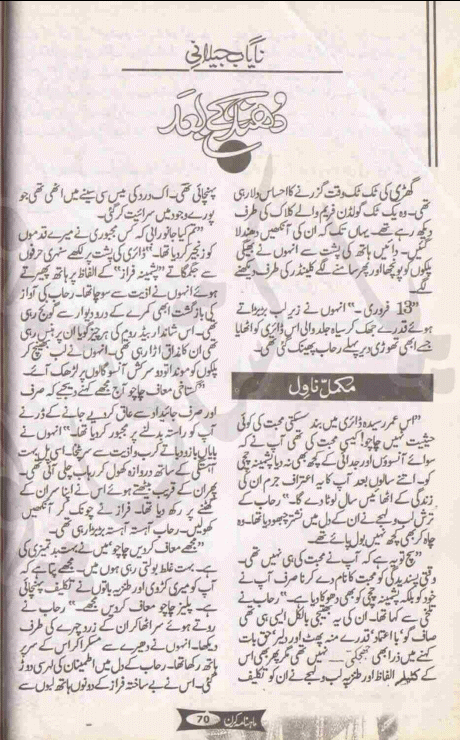 نایاب جیلانی
دُھند کے بعد
گھڑی کی ٹک ٹک وقت گزرنے کا احساس دلا رہی
تھی۔ وہ یک ٹک گولڈن فریم والے کلاک کی طرف
دیکھ رہے تھے۔ یہاں تک کہ ان کی آنکھیں دھندلا
گئیں۔ دائیں ہاتھ کی پشت سے انہوں نے بھیگی
پلکوں کو پونچھا اور پھر سامنے لگے کیلنڈر کی طرف دیکھنے
لگے۔
”13 فروری۔“ انہوں نے زیر لب بڑبڑاتے
ہوئے قدرے جھک کر سیاہ جلد والی اس ڈائری کو اٹھایا
جسے ابھی تھوڑی دیر پہلے رحاب پھینک گئی تھی۔
مکمل ناول
”اس عمر رسیدہ ڈائری میں بند سسکتی محبت کی کوئی
حیثیت نہیں چاچو! کیسی محبت کی تھی آپ نے کہ
سوائے آنسوؤں اور جدائی کے کچھ بھی نہ دیا پشمینہ چچی
کو۔ اتنے سالوں بعد آپ کا یہ اعتراف جرم ان کی
زندگی کے اٹھائیس سال لوٹا دے گا۔“ رحاب کے
ترش لب و لہجے نے ان کے دل میں نشتر چبھو دیا تھا۔ وہ
چاہ کر بھی کچھ نہیں بول پائے تھے۔
”سچ تو یہ ہے کہ آپ نے محبت کی ہی نہیں تھی۔
وقتی پسندیدگی کو محبت کا نام دے کر نا صرف آپ نے
خود کو بلکہ پشمینہ چچی کو بھی دھوکا دیا ہے۔“ رحاب نے
تلخی سے کہا تھا۔ ان کی یہ بھتیجی بالکل ایسی ہی تھی
صاف گو، با اعتماد، قدرے منہ پھٹ اور دلیر، حق بات
کہنے میں ذرا بھی جھجکتی نہیں تھی مگر پھر بھی اس
کے کٹیلے الفاظ اور طنزیہ لب و لہجے نے ان کو تکلیف
پہنچائی تھی۔ اک درد کی ٹیس سی سینے میں اٹھی تھی جو
پورے وجود میں سرائیت کر گئی۔
”تم کیا جانو رابی کہ کس مجبوری نے میرے قدموں
کو زنجیر کر دیا تھا۔“ ڈائری کی پشت پر لکھے سنہری حرفوں
سے جگمگاتے ”پشمینہ فراز“ کے الفاظ پر ہاتھ پھیرتے
ہوئے انہوں نے اذیت سے سوچا تھا۔ رحاب کی آواز
کی بازگشت ابھی کمرے کے در و دیوار سے گونج رہی
تھی۔ اس شاندار بیڈ روم کی ہر چیز گویا ان پر ہنس رہی
تھی ان کا مذاق اڑا رہی تھی۔ انہوں نے لب بھینچ کر
پلکوں کو موندا تو دو سرکش آنسو گالوں پر لڑھک آئے۔
”گستاخی معاف چاچو! آج مجھے کہنے دیجئے کہ صرف
اور صرف جائیداد سے عاق کر دیے جانے کے ڈر نے
آپ کو راستہ بدلنے پر مجبور کر دیا تھا۔“ انہوں نے
بایاں بازو دباتے کرب و اذیت سے سر پٹخا۔ اسی پل بہت
آہستگی کے ساتھ دروازہ کھول کر رحاب چلی آئی تھی۔
پھر ان کے قریب بیٹھتے ہوئے اس نے اپنا سر ان کے
گھٹنے پر رکھ دیا تھا۔ فراز نے چونک کر آنکھیں
کھولیں۔ رحاب آہستہ آہستہ بڑبڑا رہی تھی۔
”مجھے معاف کر دیں چاچو میں نے بہت بدتمیزی کی
ہے۔ بہت غلط بولتی رہی ہوں میں۔ مجھے پتا ہے کہ
آپ کو میری کڑوی اور طنزیہ باتوں نے تکلیف پہنچائی
ہے۔ پلیز چاچو معاف کر دیں مجھے۔“ رحاب نے
روتے ہوئے سر اٹھا کر ان کے زرد چہرے کی طرف
دیکھا۔ انہوں نے دھیرے سے مسکرا کر اس کے سر پر
ہاتھ رکھا تھا۔ رحاب کے دل میں اطمینان کی لہر سی دوڑ
گئی۔ اس نے بے ساختہ فراز کے دونوں ہاتھ لبوں سے
ماہنامہ کرن 70